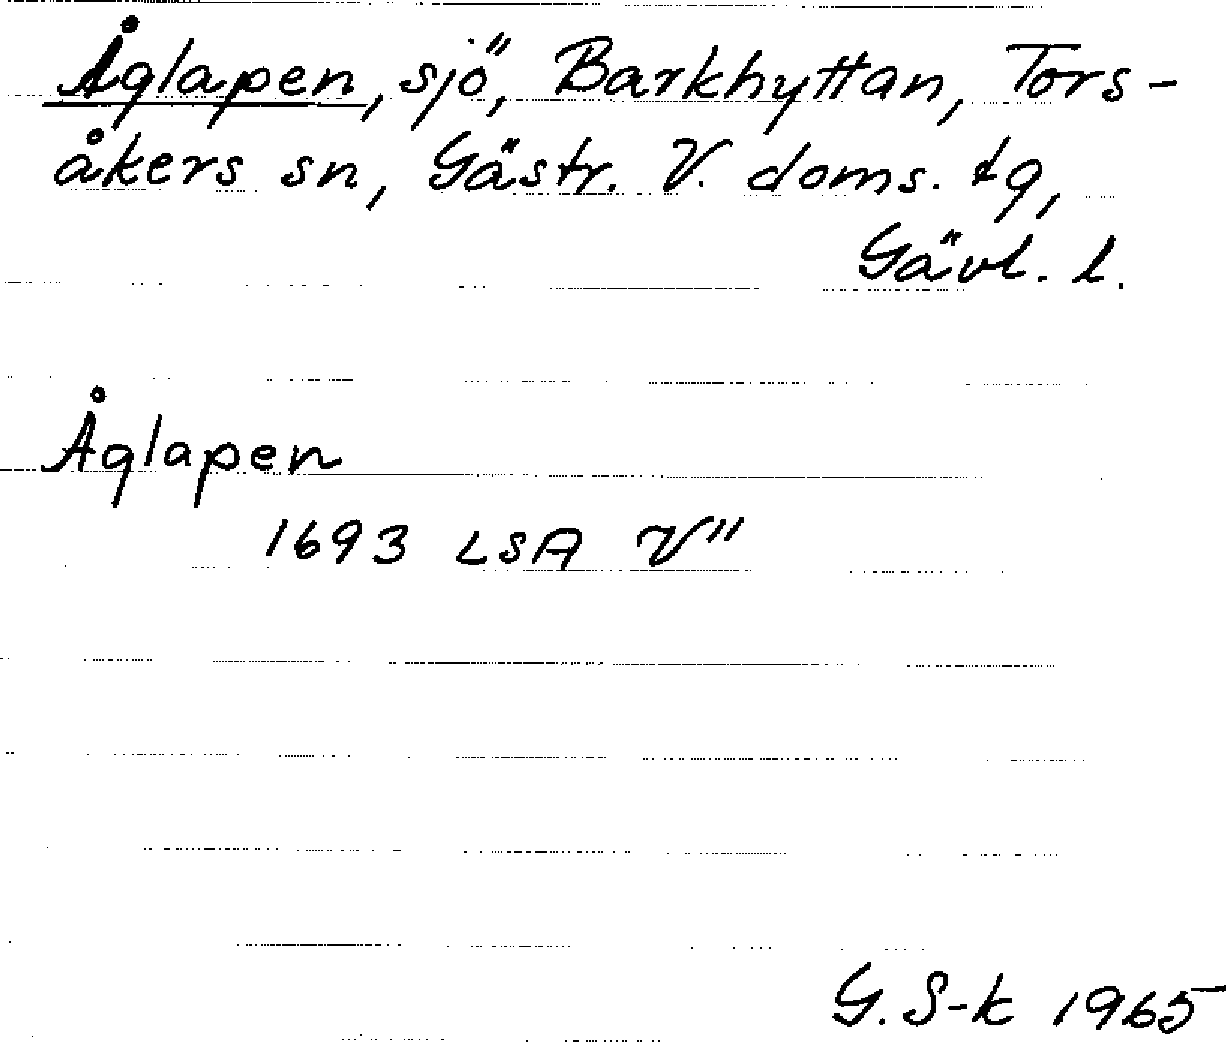 Åglapen, sjö, Barkhyttan, Tors-
åkers sn, Gästr. V. doms. tg,
Gävl. l.
Åglapen
1693 LSA V"
G. S-k 1965